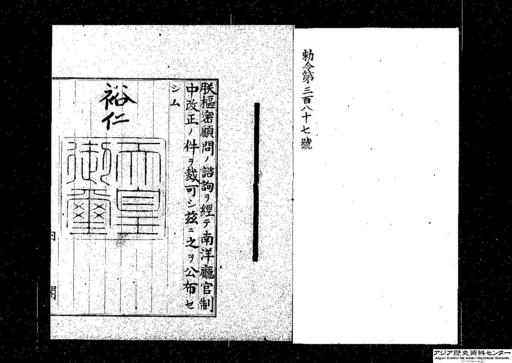 勅令第三百八十七號
朕樞密顧問ノ諮詢ヲ經テ南洋廳官制
中改正ノ件ヲ裁可シ茲ニ之ヲ公布セ
シム
裕仁
天皇
御璽
内
閣
アジア歴史資料センター
Japan Center for Asian Historical Records